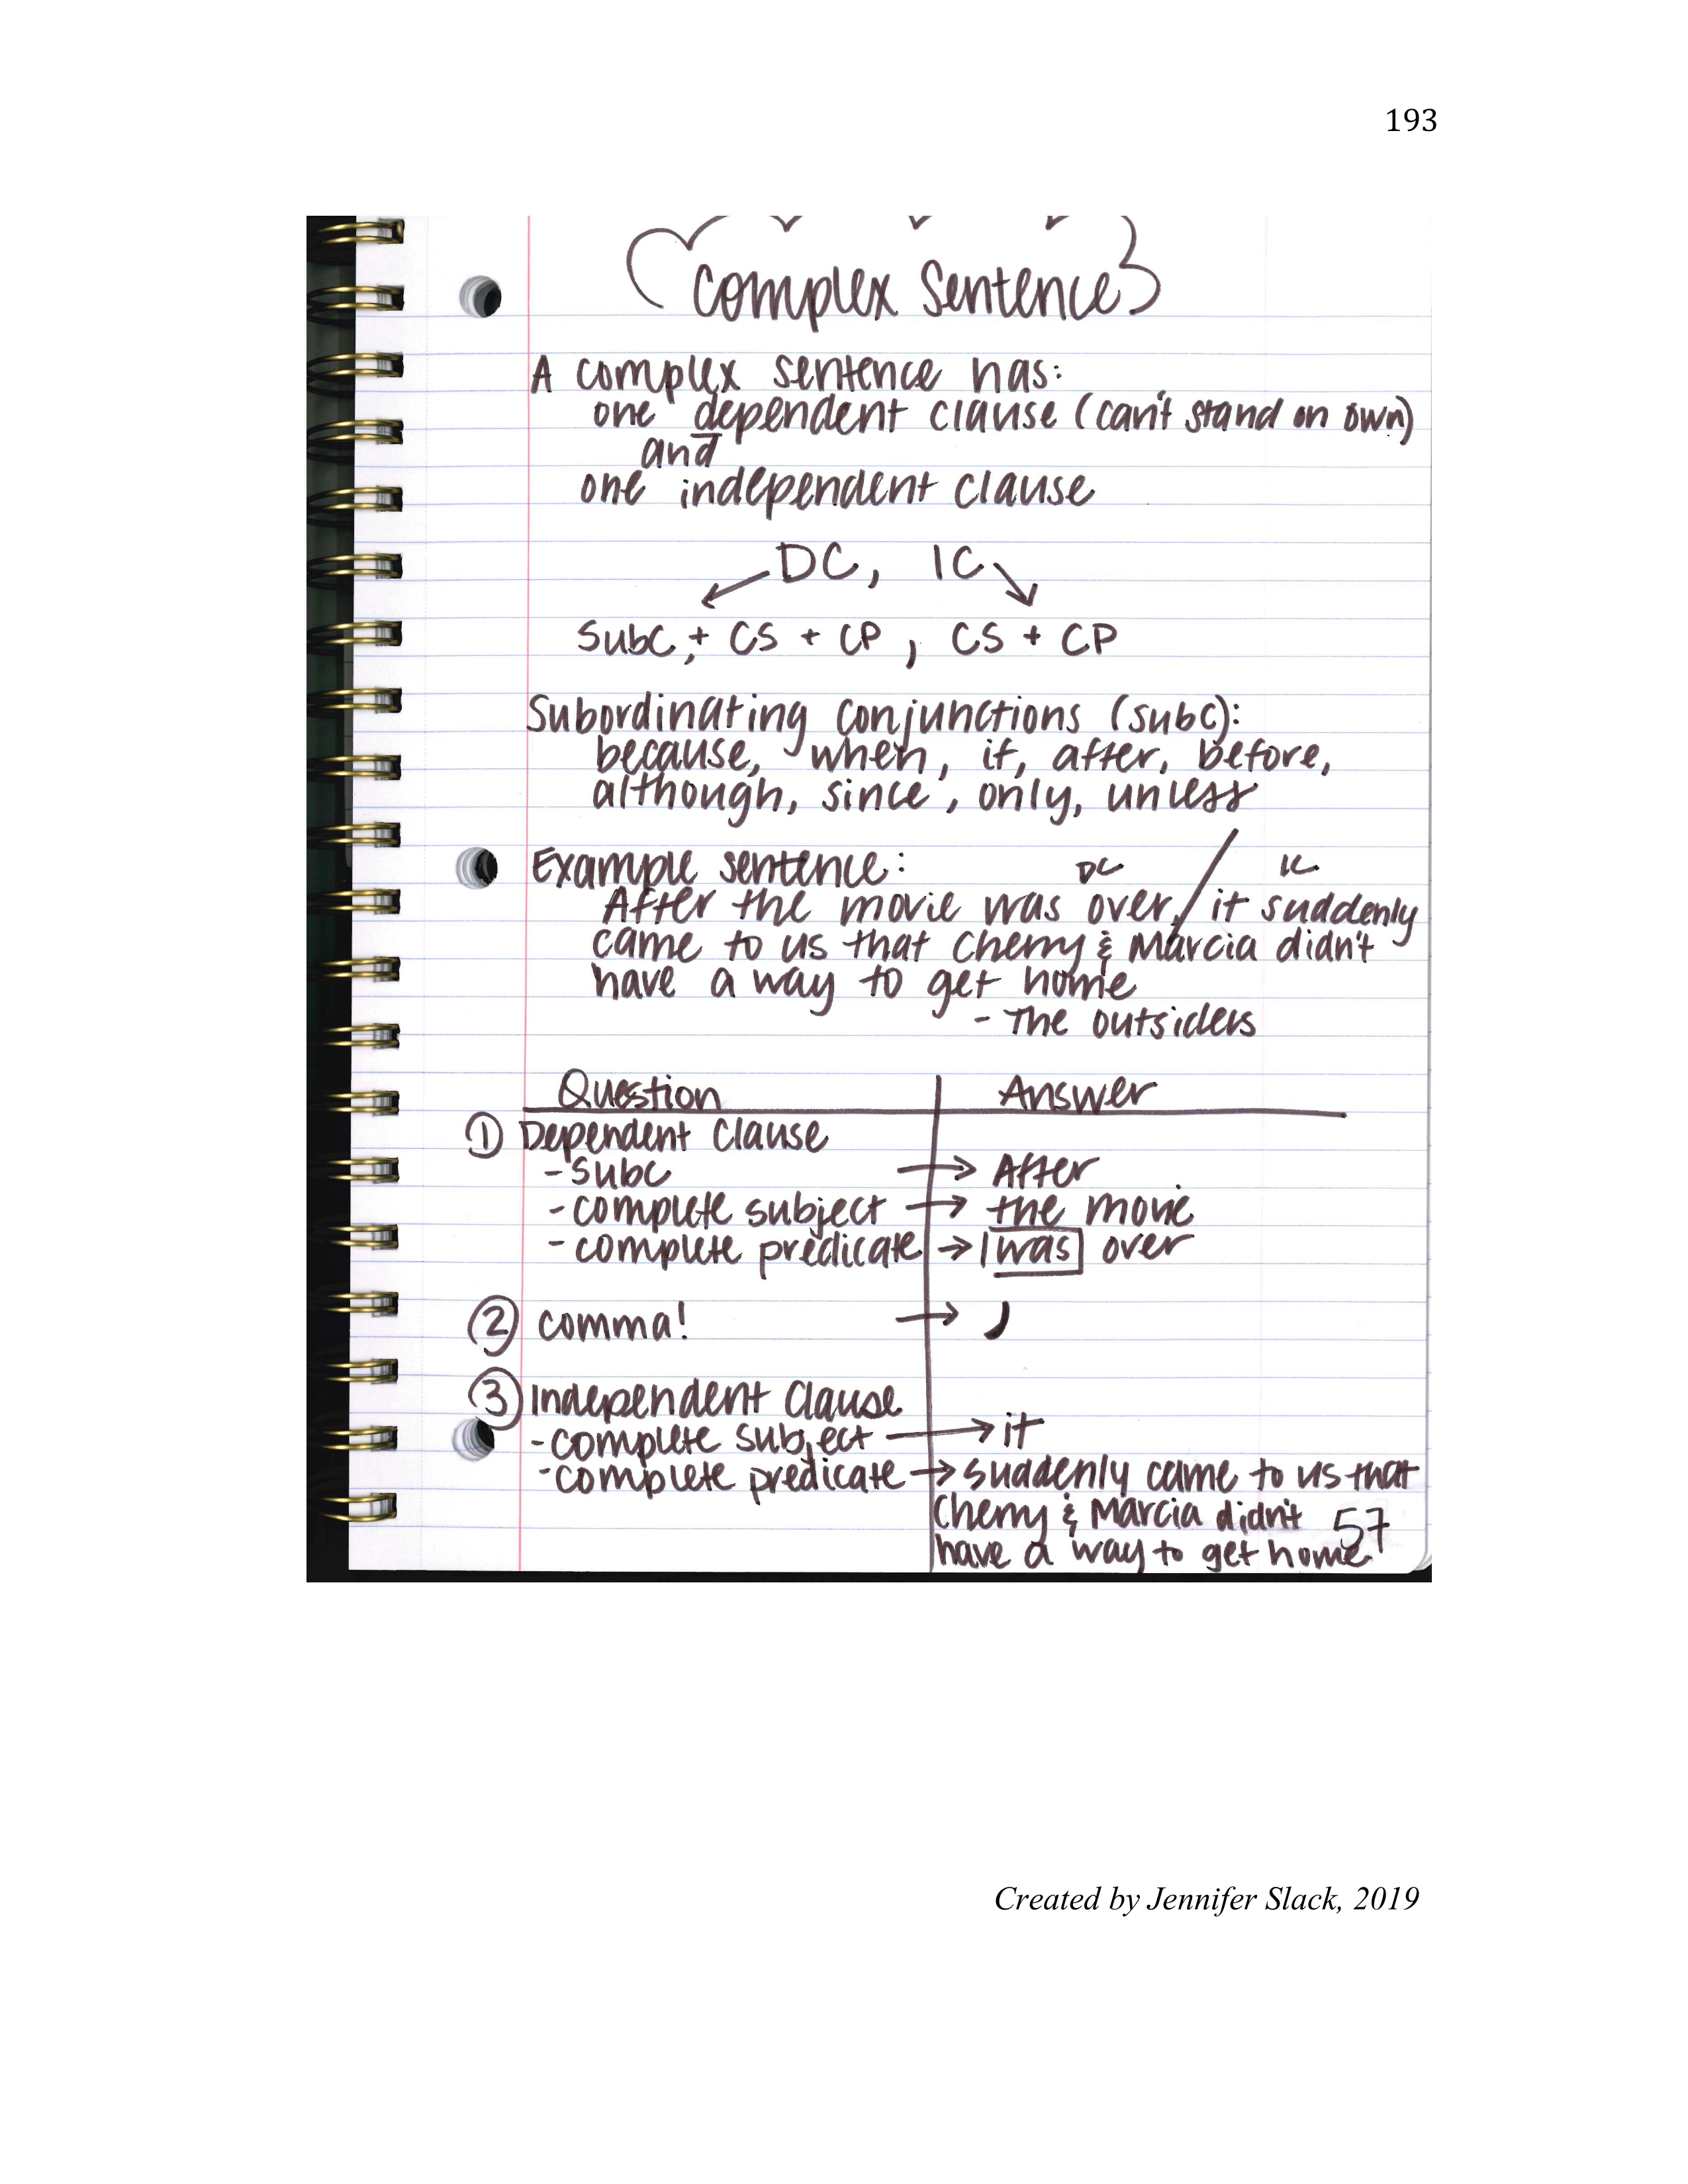 193
Complex Sentence
A complex sentence has:
one dependent clause (can't stand on own)
and
one independent clause
DC, IC
Subc + CS + CP, CS + CP
Subordinating conjunctions (subc):
because, when, if, after, before,
although, since, only, unless
Example sentence: DC / IC
After the movie was over, it suddenly
came to us that Cherry & Marcia didn't
have a way to get home
- The outsiders
Question Answer
① Dependent Clause
- subc → After
- complete subject → the movie
- complete predicate → was over
② comma! → ,
③ Independent Clause
- complete subject → it
- complete predicate → suddenly came to us that
Cherry & Marcia didn't 57
have a way to get home
Created by Jennifer Slack, 2019